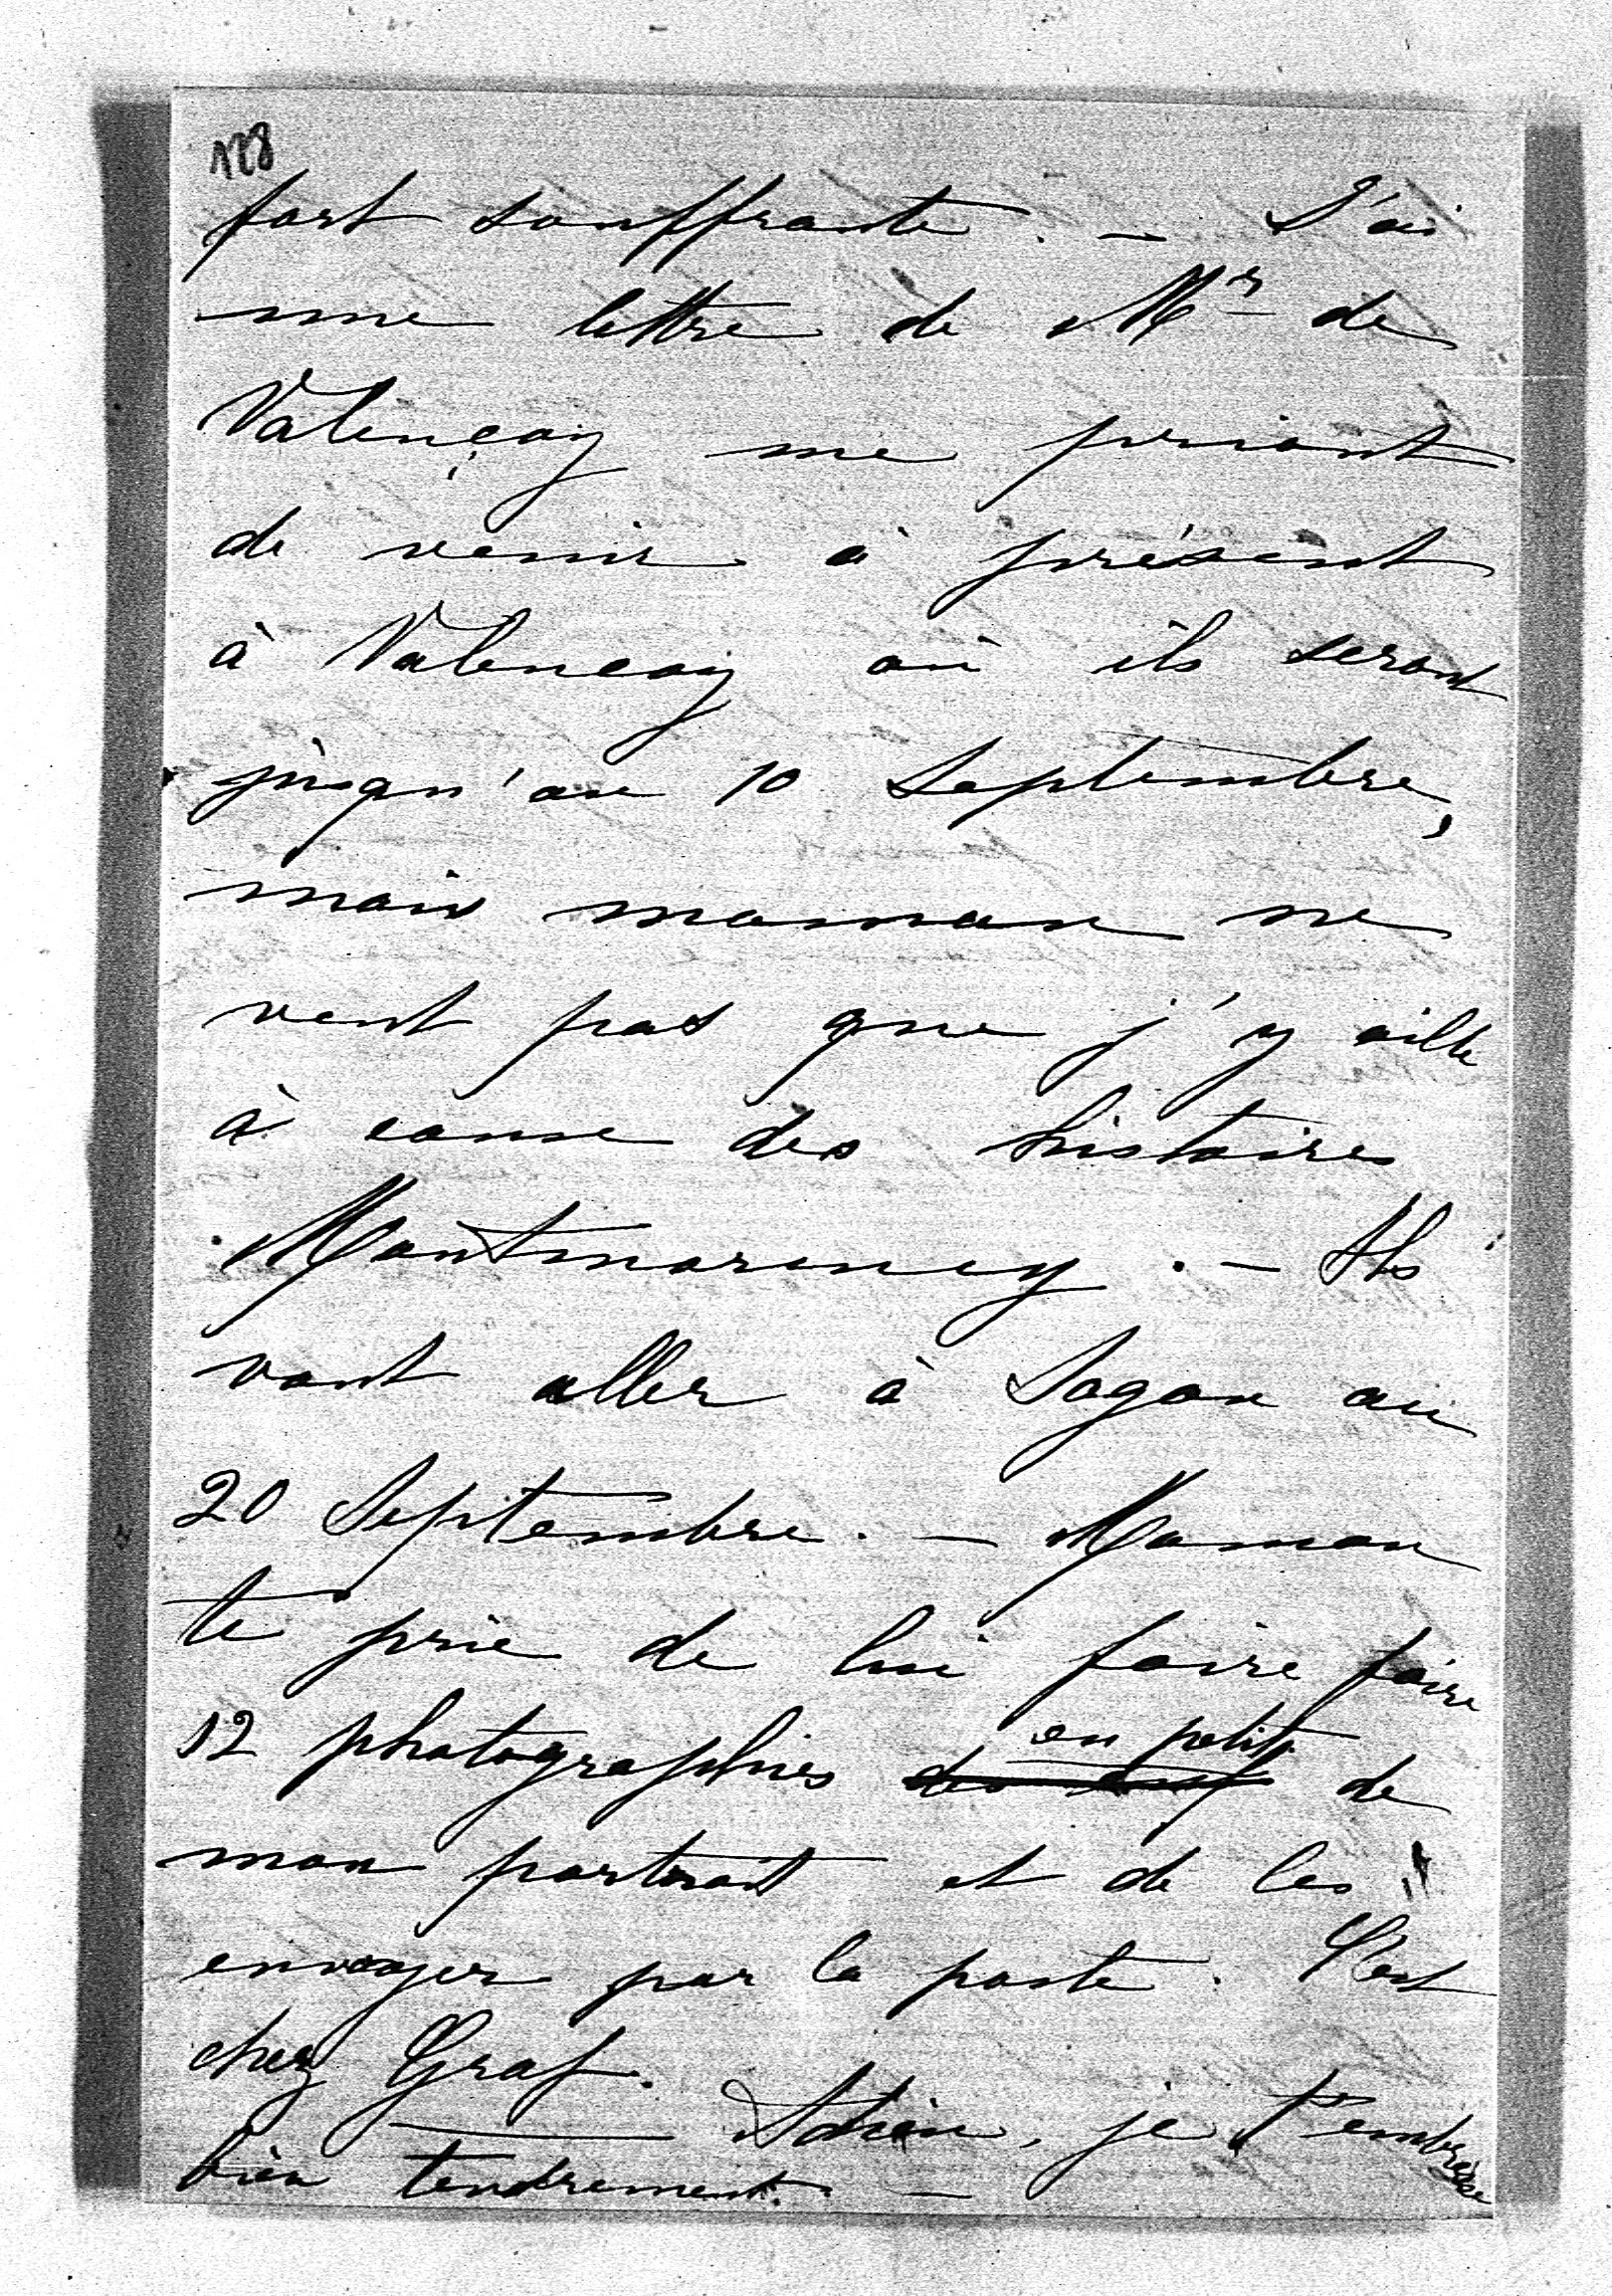 128
fort souffrante. — J'ai
une lettre de Mr de
Valençay me priant
de venir à présent
à Valencay où ils seront
jusqu'au 10 Septembre,
mais maman ne
veut pas que j'y aille
à cause des histoires
Montmorency. — Ils
vont aller à Sagan au
20 Septembre. — Maman
te prie de lui faire faire
12 photographies en petit de
mon portrait et de les
envoyer par la poste. C'est
chez Graf.
— Adieu, je t'embrasse
bien tendrement. —